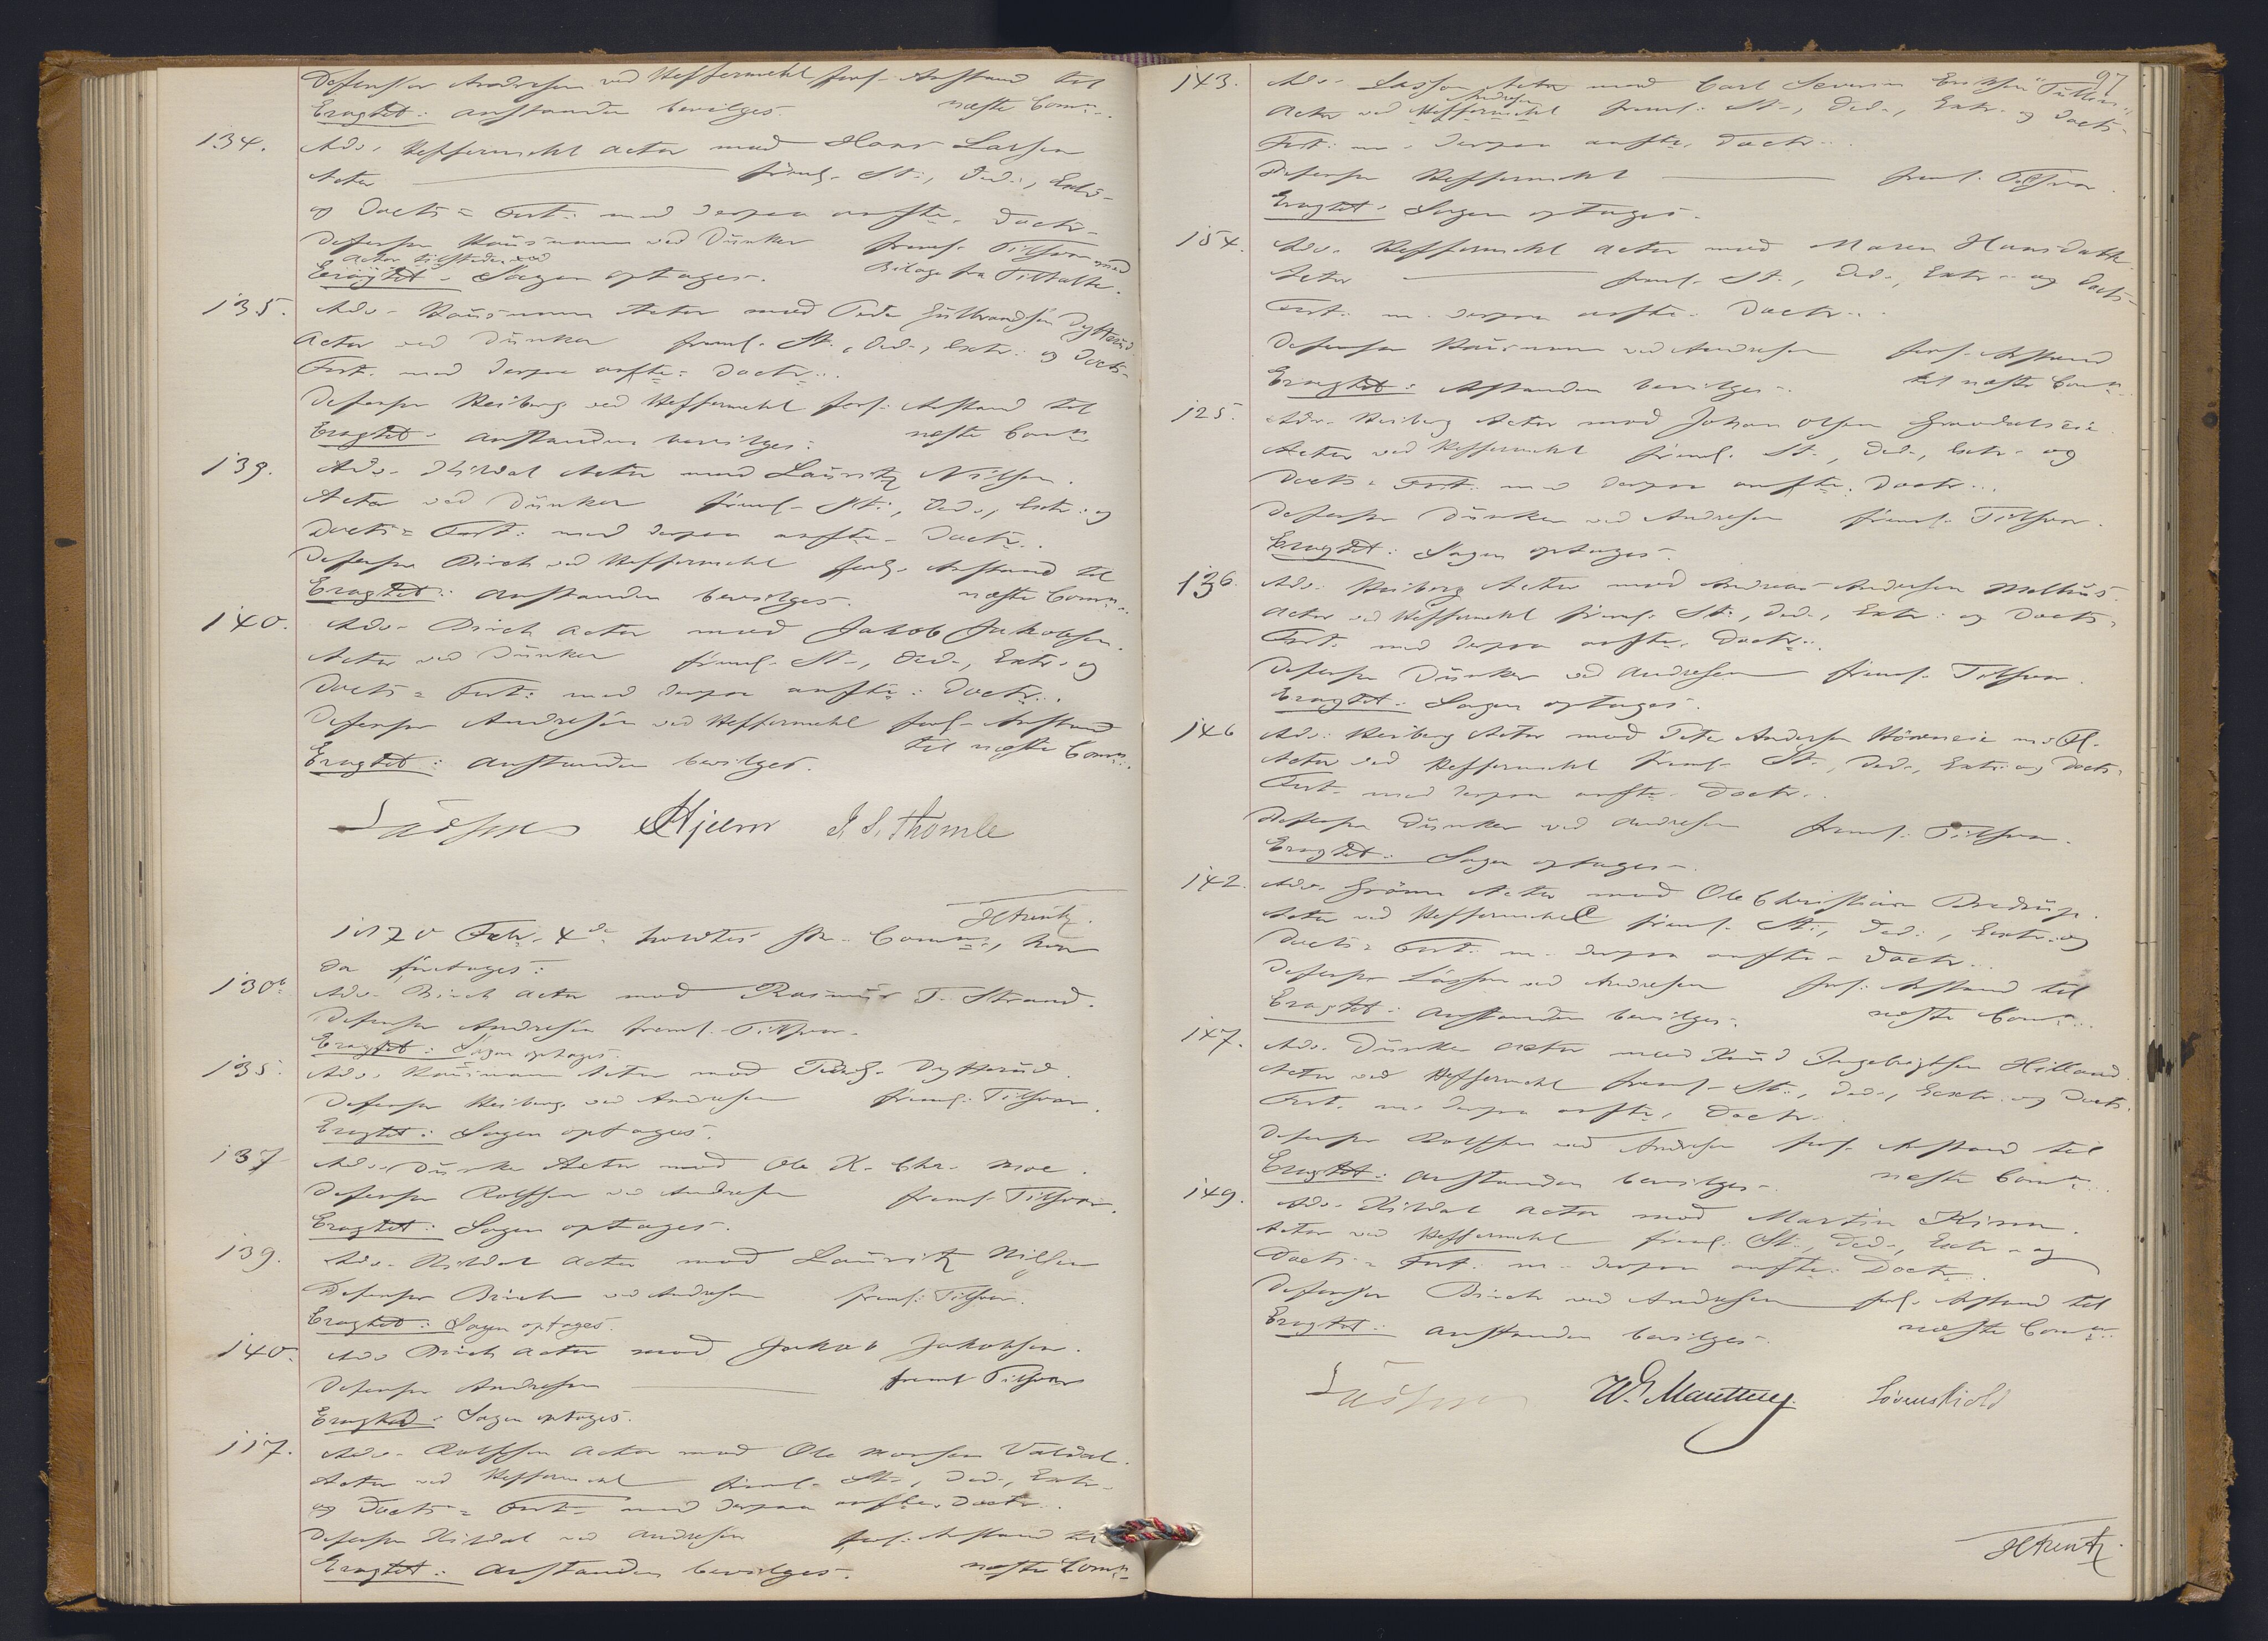 Defensor Andresen ved Heffermehl forl. Anstand til
Eragtet: Anstanden bevilges. næste Comn.
134. Adv. Heffermehl Actor mod Hans Larsen
Actor freml. St., Ded., Extr.
og Docts = Fort. med derpaa anfte. Doctr.
Defensor Hausmann ved Dunker freml. Tilsvar med
Actor tilstede ved Bilage fra Tiltalte.
Eragtet. Sagen optages.
135. Adv. Hausmann Actor mod Peder Gulbrandsen Dytterud.
Actor ved Dunker freml. St., Ded., Extr. og Docts
Fort. med derpaa anfte. Doctr.
Defensor Heiberg ved Heffermehl forl. Anstand til
Eragtet. Anstanden bevilges. næste Comn.
139. Adv. Kildal Actor mod Lauritz Nilsen.
Actor ved Dunker freml. St., Ded., Extr. og
Docts = Fort. med derpaa anfte. Doctr.
Defensor Birch ved Heffermehl forl. Anstand til
Eragtet: Anstanden bevilges. næste Comn.
140. Adv. Birch Actor mod Jakob Jakobsen.
Actor ved Dunker freml. St., Ded., Extr. og
Docts = Fort. med derpaa anfte. Doctr.
Defensor Andresen ved Heffermehl forl. Anstand
til næste Comn.
Eragtet: Anstanden bevilges.
Lasson Hjelm J. S. Thomle
1870 Febr. 4de holdtes Comn., hvor
da foretages:
130b. Adv. Birch Actor mod Rasmus T. Strand.
Defensor Andresen freml. Tilsvar.
Eragtet: Sagen optages.
135. Adv. Hausmann Actor mod Ped. G. Dytterud.
Defensor Heiberg ved Andresen freml. Tilsvar.
Eragtet: Sagen optages.
137 Adv. Dunker Actor mod Ole K. Chr. Moe.
Defensor Rolfsen ved Andresen freml. Tilsvar.
Eragtet: Sagen optages.
139. Adv. Kildal Actor mod Lauritz Nilsen
Defensor Birch ved Andresen freml. Tilsvar.
Eragtet: Sagen optages.
140. Adv. Birch Actor mod Jakob Jakobsen.
Defensor Andresen freml. Tilsvar
Eragtet. Sagen optages.
117. Adv. Rolfsen Actor mod Ole Valdal.
Actor ved Heffermehl freml. St., Ded., Extr.
og Docts = Fort. med derpaa anfte. Doctr.
Defensor Kildal ved Andresen forl. Anstand til
Eragtet: Anstanden bevilges. næste Comn.
97
143. Adv. Lasson Actor mod Carl Severin Eriksen
Andresen
Actor ved Heffermehl freml. St., Ded., Extr. og Docts
Fort. m. derpaa anfte. Doctr.
Defensor Heffermehl freml. Tilsvar.
Eragtet: Sagen optages.
154. Adv. Heffermehl Actor mod Maren Hansdatter
Actor freml. St., Ded., Extr. og Docts
Fort. m. derpaa anfte. Doctr.
Defensor Hausmann ved Andresen forl. Anstand
Eragtet: Anstanden bevilges. til næste Comn.
125. Adv. Heiberg Actor mod Johan Olsen
Actor ved Heffermehl freml. St., Ded., Extr. og
Docts = Fort. med derpaa anfte. Doctr.
Defensor Dunker ved Andresen freml. Tilsvar.
Eragtet: Sagen optages.
136. Adv. Heiberg Actor mod Andreas Andersen
Actor ved Heffermehl freml. St., Ded., Extr. og Docts
Fort. med derpaa anfte. Doctr.
Defensor Dunker ved Andresen freml. Tilsvar.
Eragtet: Sagen optages.
146 Adv. Heiberg Actor mod Peter Andersen m. Fl.
Actor ved Heffermehl freml. St., Ded., Extr. og Docts
Fort. med derpaa anfte. Doctr.
Defensor Dunker ved Andresen freml. Tilsvar.
Eragtet: Sagen optages.
142. Adv. Grønn Actor mod Ole Christian
Actor ved Heffermehl freml. St., Ded., Extr. og
Docts = Fort. m. derpaa anfte. Doctr.
Defensor Lasson ved Andresen forl. Anstand til
Eragtet: Anstanden bevilges. næste Comn.
147. Adv. Dunker Actor mod Knud Ingebrigtsen Hilland
Actor ved Heffermehl freml. St., Ded., Extr. og Docts
Fort. m. derpaa anfte. Doctr.
Defensor Rolfsen ved Andresen forl. Anstand til
Eragtet: Anstanden bevilges. næste Comn.
149. Adv. Kildal Actor mod Martin Kinn.
Actor ved Heffermehl freml. St., Ded., Extr. og
Docts = Fort. m. derpaa anfte. Doctr.
Defensor Birch ved Andresen forl. Anstand til
Eragtet: Anstanden bevilges. næste Comn.
Lasson Løvenskiold